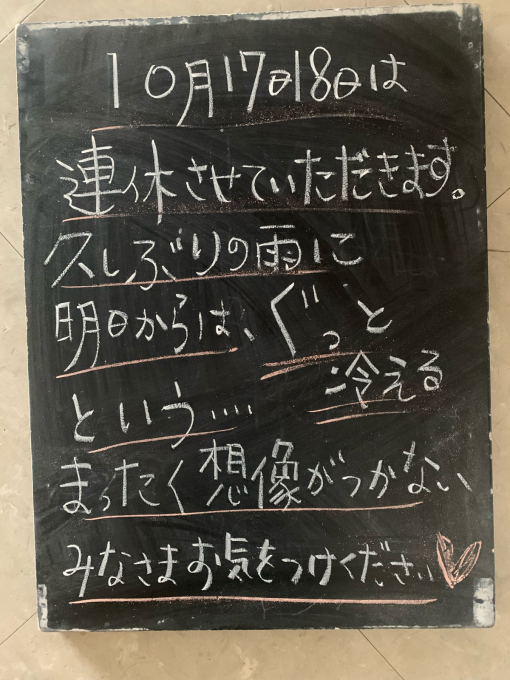 10月17日18日は
連休させていただきます。
久しぶりの雨に
明日からは、ぐっと
冷える
という....
まったく想像がつかない
みなさまお気をつけください